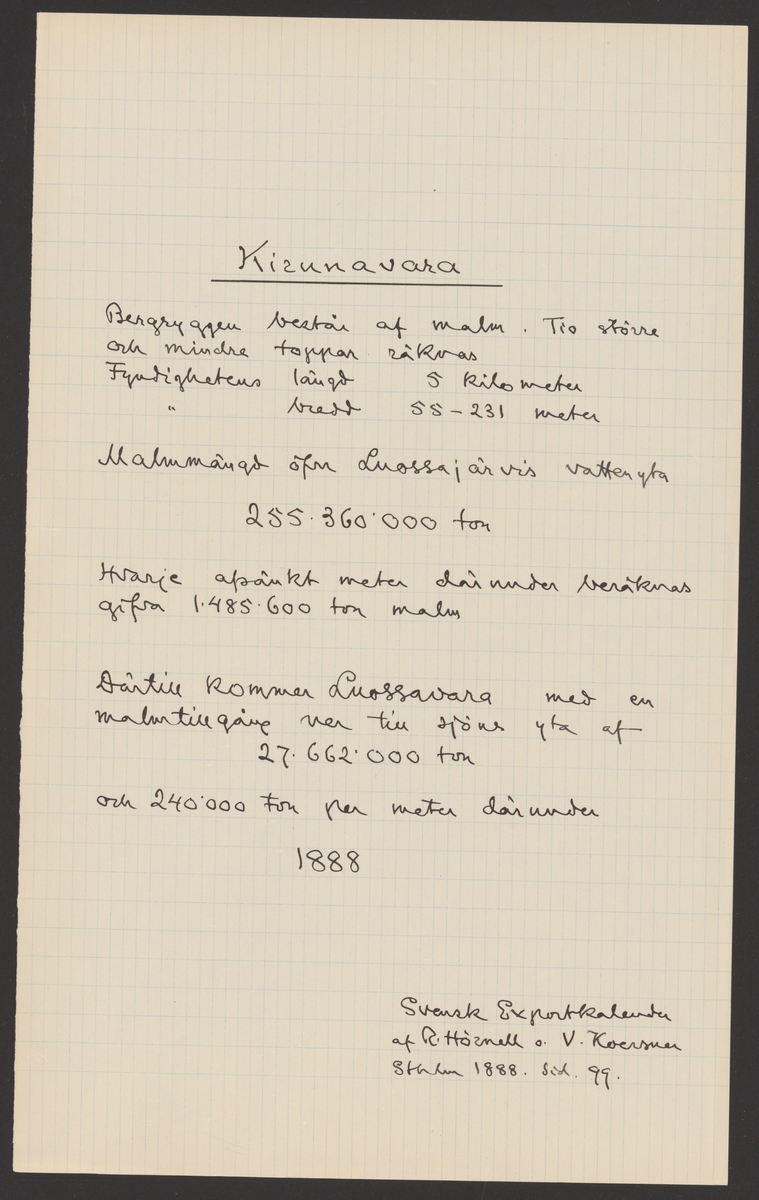 Kirunavara
Bergryggen består af malm. Tio större
och mindre toppar räknas
Fyndighetens längd 5 kilometer
" bredd 55-231 meter
Malmmängd öfver Luossajärvis vattenyta
255.360.000 ton
Hvarje afsänkt meter därunder beräknas
gifva 1.485.600 ton malm
Därtill kommer Luossavara med en
malmtillgång ner till sjöns yta af
27.662.000 ton
och 240.000 ton per meter därunder
1888
Svensk Exportkalender
af R. Hörnell o. V. Koersner
Sthlm 1888. Sid. 99.